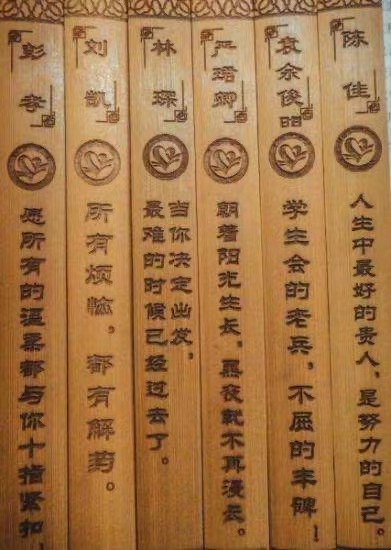 陈佳
人生中最好的贵人，是努力的自己。
袁余俊
学生会的老兵，不屈的丰碑！
严珺卿
朝着阳光生长，黑夜就不再漫长。
林琛
当你决定出发，
最难的时候已经过去了。
刘凯
所有烦恼，都有解药。
彭
愿所有的温柔都与你十指紧扣